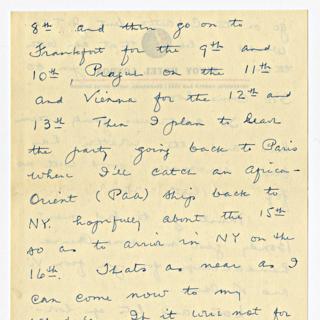 8th and then go on to
Frankfort for the 9th and
10th, Prague on the 11th
and Vienna for the 12th and
13th Then I plan to leave
the party going back to Paris
where I'll catch an Africa-
Orient (PAA) ship back to
NY. hopefully about the 15th
so as to arrive in NY on the
16th. Thats as near as I
can come now to my
If it were not for